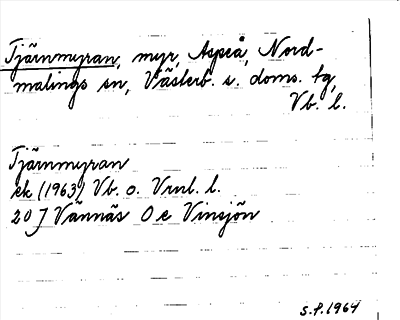 Tjärnmyran, myr, Aspeå, Nord-
malings sn, Västerb. s. doms. tg,
Vb. l.
Tjärnmyran
ek (1963) Vb. o. Vrnl. l.
20 J Vännäs 0 c Vinsjön
S.P. 1964